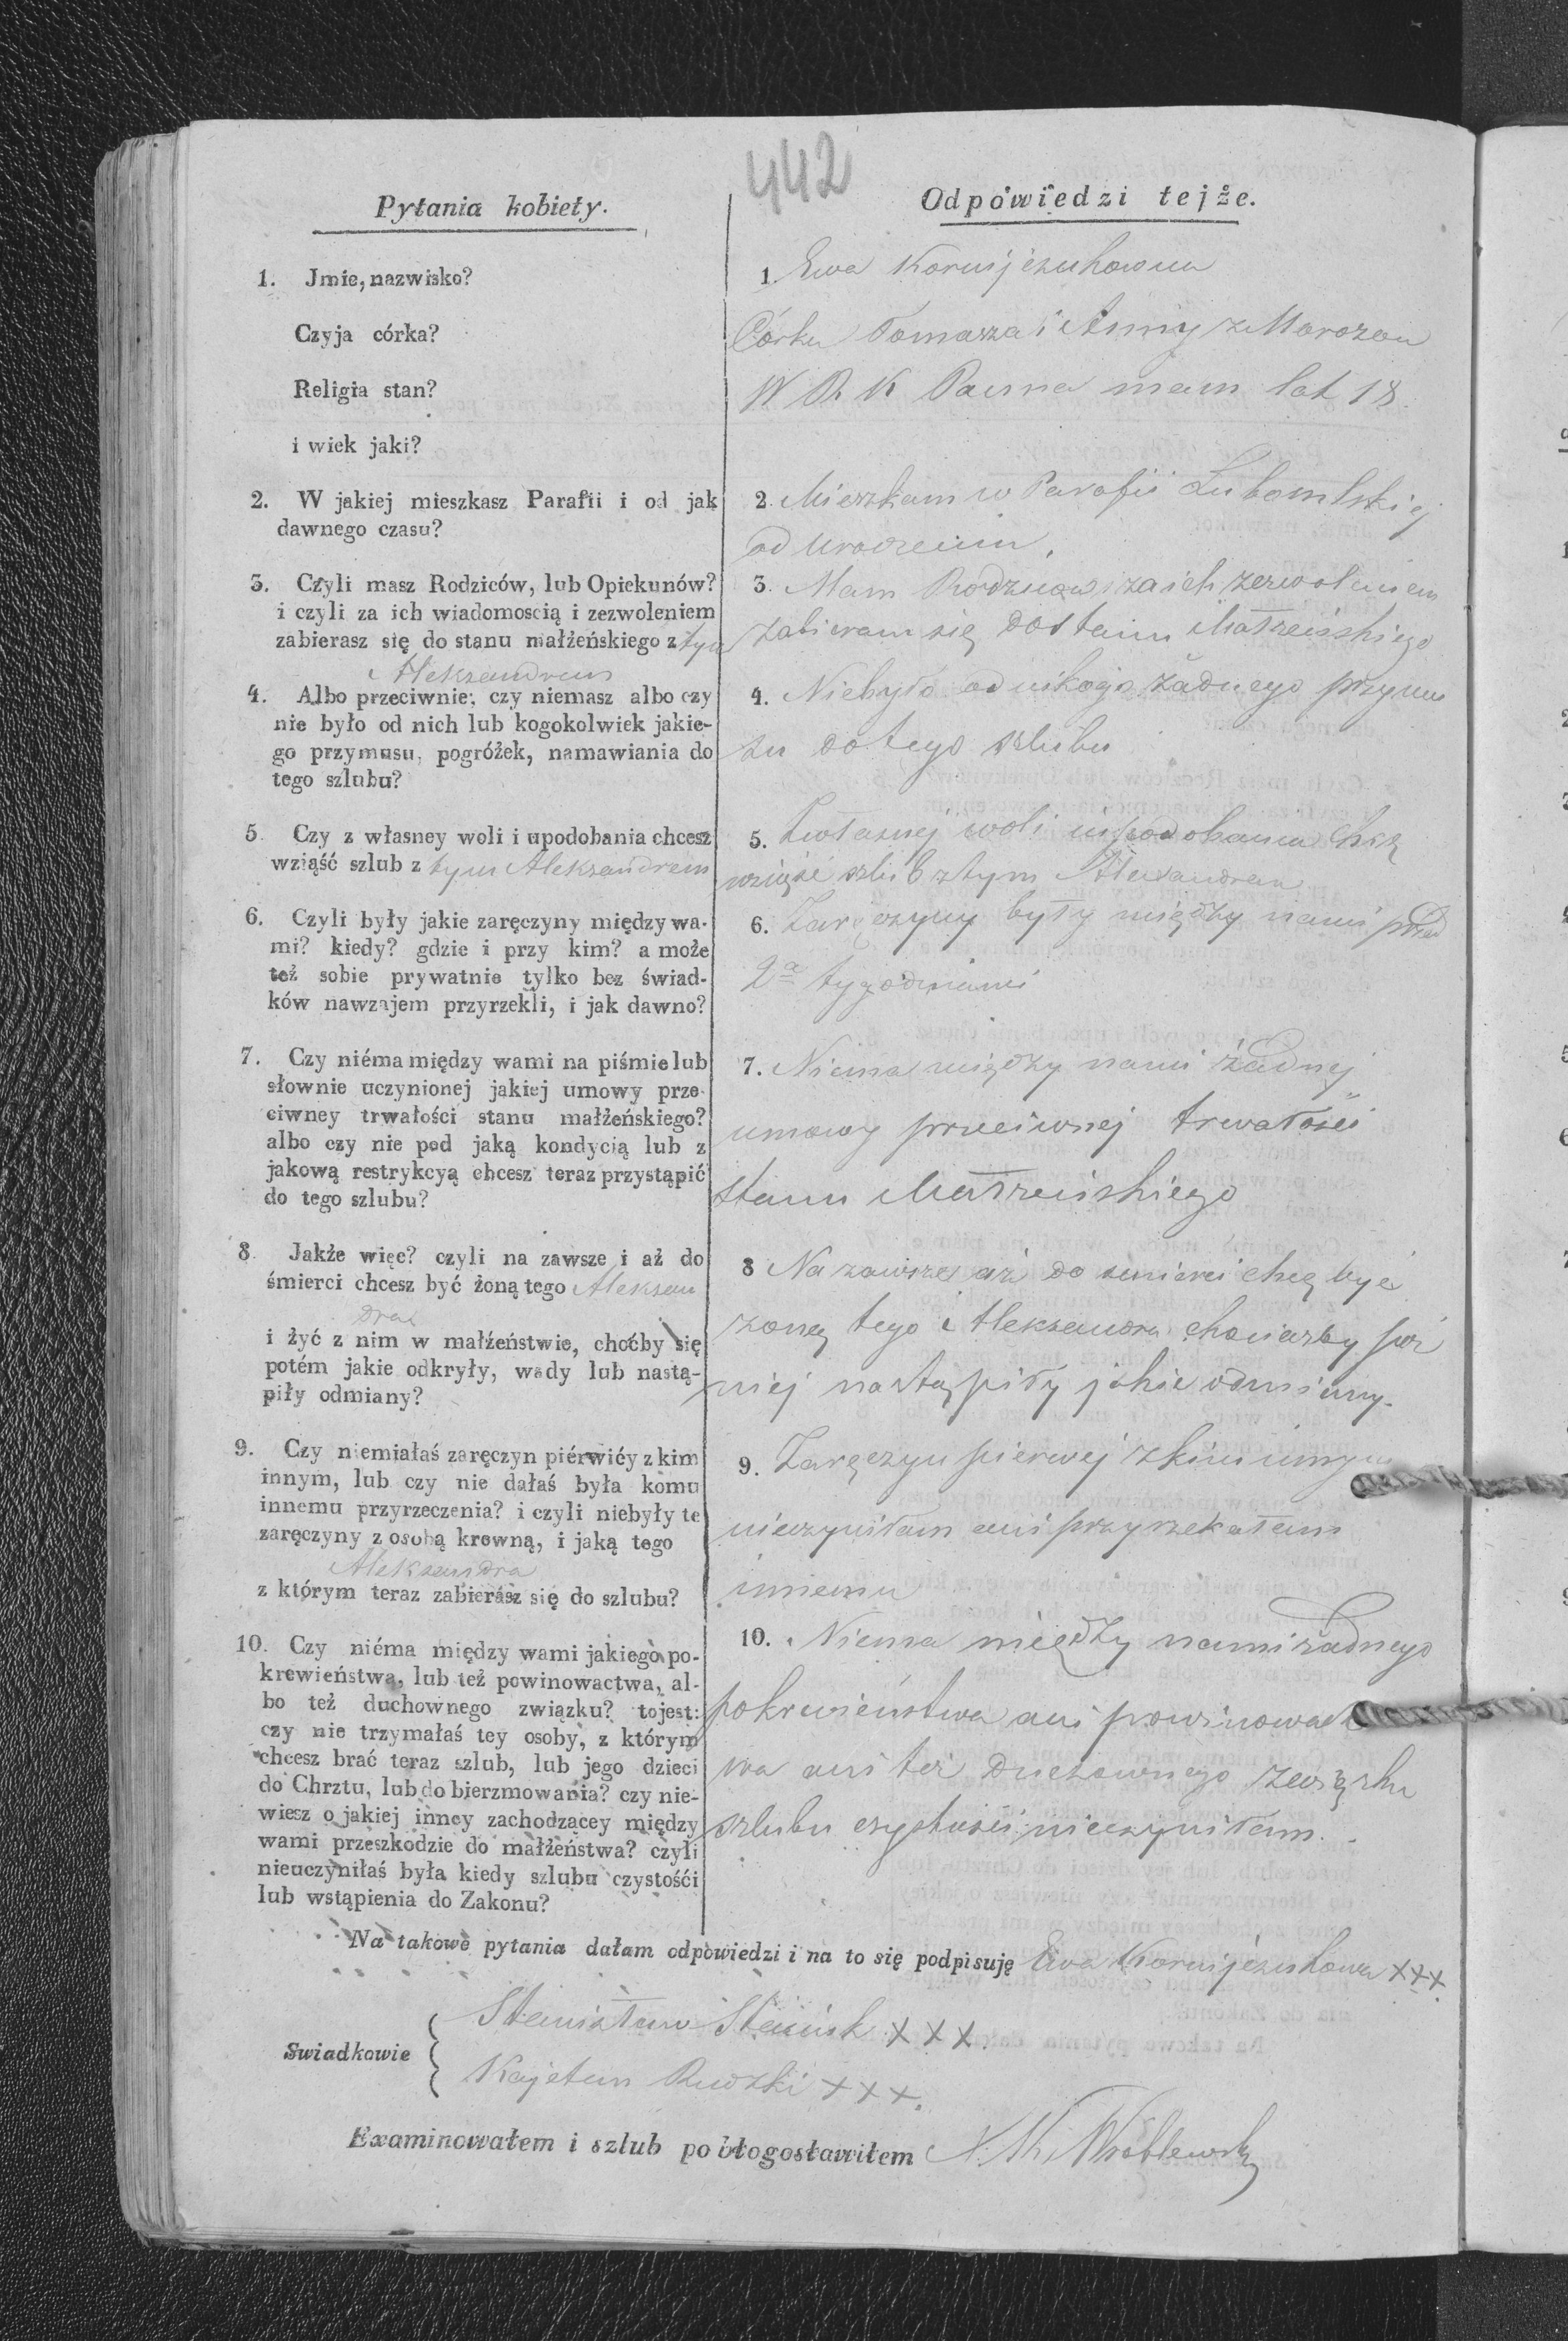 442
Pytania kobiety.
1. Jmie, nazwisko?
Czyja córka?
Religia stan?
i wiek jaki?
2. W jakiej mieszkasz Parafii i od jak
dawnego czasu?
3. Czyli masz Rodziców, lub Opiekunów?
i czyli za ich wiadomoscią i zezwoleniem
zabierasz się do stanu małżeńskiego z tym
Aleksandrem
4. Albo przeciwnie; czy niemasz albo czy
nie było od nich lub kogokolwiek jakie-
go przymusu, pogróżek, namawiania do
tego szlubu?
5. Czy z własney woli i upodobania chcesz
wziąść szlub z tym Aleksandrem
6. Czyli były jakie zaręczyny między wa-
mi? kiedy? gdzie i przy kim? a może
też sobie prywatnie tylko bez świad-
ków nawzajem przyrzekli, i jak dawno?
7. Czy niéma między wami na piśmie lub
słownie uczynionej jakiej umowy prze-
ciwney trwałości stanu małżeńskiego?
albo czy nie pod jaką kondycią lub z
jakową restrykcyą chcesz teraz przystąpić
do tego szlubu?
8. Jakże więc? czyli na zawsze i aż do
śmierci chcesz być żoną tego Aleksan
dra
i żyć z nim w małżeństwie, choćby się
potém jakie odkryły, wady lub nastą-
piły odmiany?
9. Czy niemiałaś zaręczyn piérwiéy z kim
innym, lub czy nie dałaś była komu
innemu przyrzeczenia? i czyli niebyły te
zaręczyny z osobą krewną, i jaką tego
Aleksandra
z którym teraz zabierász się do szlubu?
10. Czy niéma między wami jakiego po-
krewieństwa, lub też powinowactwa, al-
bo też duchownego związku? tojest:
czy nie trzymałaś tey osoby, z którym
chcesz brać teraz szlub, lub jego dzieci
do Chrztu, lub do bierzmowania? czy nie-
wiesz o jakiej inney zachodzacey między
wami przeszkodzie do małżeństwa? czyli
nieuczyniłaś była kiedy szlubu czystośći
lub wstąpienia do Zakonu?
Odpowiedzi tejże.
1. Ewa Kornijczukowna
Córka Tomasza i Anny z Marozow
W R K Panna mam lat 18.
2. Mieszkam w Parafii Lubomlskiej
od urodzenia.
3. Mam Rodziców i za ich zezwoleniem
zabieram się do stanu Małżeńskiego
4. Niebyło od nikogo żadnego przymu
su do tego szlubu
5. Z własnej woli i upodobania chcę
wziąść szlub z tym Alexandrem
6. Zaręczyny były między nami przed
2a tygodniami
7. Niema między nami żadnej
umowy przeciwnej trwałości
stanu Małżeńskiego
8 Na zawsze i aż do smierci chcę być
żoną tego Aleksandra chociażby poź
niej nastąpiły jakie odmiany.
9. Zaręczyn pierwej z kim innym
nieczyniłam ani przyrzekałam
innemu
10. Niema między nami żadnego
pokrewieństwa ani powinowact
wa ani też duchownego związku
szlubu czystości nieczyniłam.
Na takowe pytania dałam odpowiedzi i na to się podpisuję Ewa Kornijczukowna XXX.
Swiadkowie
Stanisław XXX.
Kajetan Rudzki XXX.
Examinowałem i szlub pobłogosławiłem Wróblewski